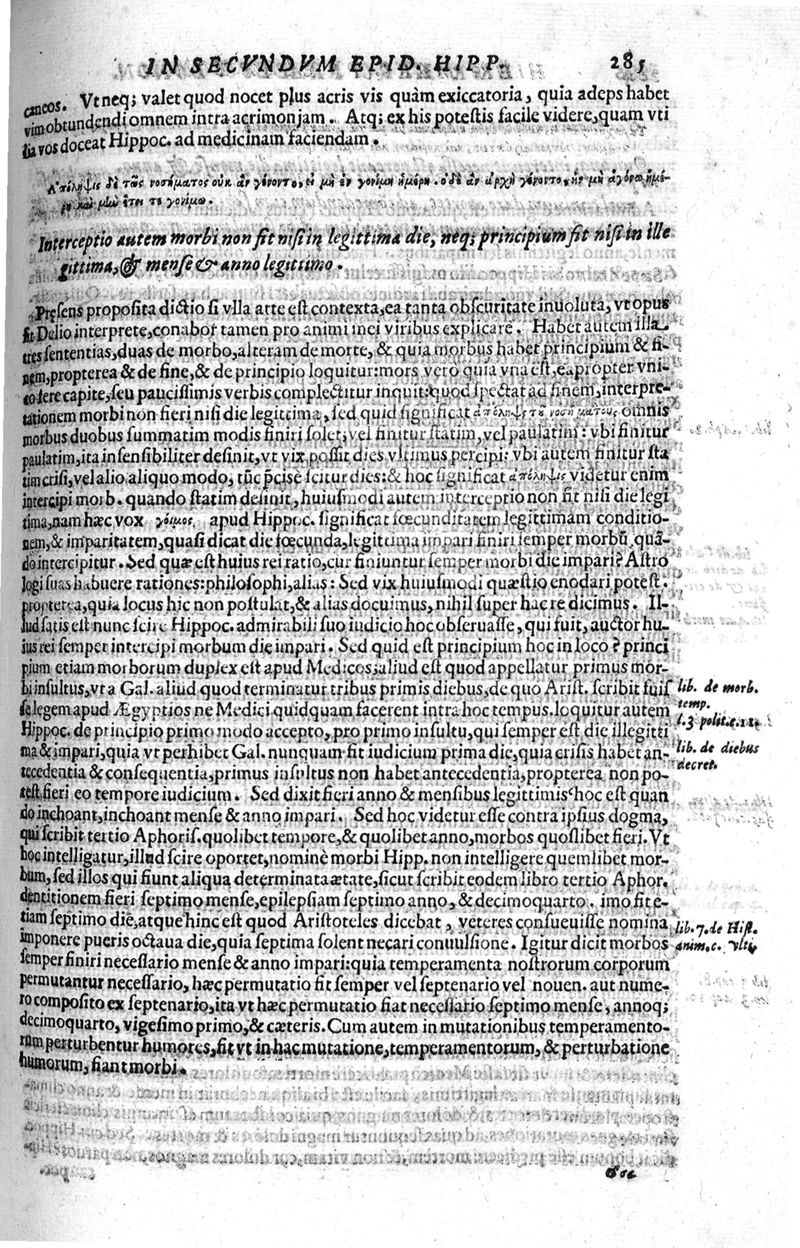 IN SECVNDVM EPID. HIPP. 285
caneos. Vt neq; valet quod nocet plus acris vis quàm exiccatoria, quia adeps habet
vim obtundendi omnem intra acrimonjam. Atq; ex his potestis facile videre, quam vti
lia vos doceat Hippoc. ad medicinam faciendam.
Interceptio autem morbi non fit nisi in legittima die, neq; principium fit nisi in ille
gittima, & mense & anno legittimo.
Pręsens proposita dictio si vlla arte est contexta, ea tanta obscuritate inuoluta, vt opus
sit Delio interprete, conabor tamen pro animi mei viribus explicare. Habet autem illa
tres sententias, duas de morbo, alteram de morte, & quia morbus habet principium & fi-
nem, propterea & de fine, & de principio loquitur: mors vero quia vna est, eapropter vni-
co fere capite, seu paucissimis verbis complectitur inquit: quod spectat ad finem, interpre-
tationem morbi non fieri nisi die legittima, sed quid significat ἀπόληψις του νοσήματους omnis
morbus duobus summatim modis finiri solet; vel finitur statim, vel paulatim: vbi finitur
paulatim, ita insensibiliter desinit, vt vix possit dies vltimus percipi: vbi autem finitur sta
tim crisi, vel alio aliquo modo, tūc p̄cisè scitur dies: & hoc significat ἀπόληψις videtur enim
intercipi morb. quando statim desinit, huiusmodi autem interceptio non fit nisi die legi
tima, nam hæc vox γόιμος apud Hippoc. significat fœcunditatem legittimam conditio-
nem, & imparitatem, quasi dicat die fœcunda, legittima impari finiri semper morbū, quā-
do intercipitur. Sed quæ est huius rei ratio, cur finiuntur semper morbi die impari? Astro
logi suas habuere rationes: philosophi, alias: Sed vix huiusmodi quæstio enodari potest.
propterea, quia locus hic non postulat, & alias docuimus, nihil super hac re dicimus. Il-
lud satis est nunc scire Hippoc. admirabili suo iudicio hoc obseruasse, qui fuit, auctor hu-
ius rei semper intercipi morbum die impari. Sed quid est principium hoc in loco? princi
pium etiam morborum duplex est apud Medicos; aliud est quod appellatur primus mor-
bi insultus, vt a Gal. aliud quod terminatur tribus primis diebus, de quo Arist. scribit fuis
se legem apud Ægyptios ne Medici quidquam facerent intra hoc tempus. loquitur autem
Hippoc. de principio primo modo accepto, pro primo insultu, qui semper est die illegitti
ma & impari, quia vt perhibet Gal. nunquam fit iudicium prima die, quia crisis habet an-
tecedentia & consequentia, primus insultus non habet antecedentia, propterea non po-
test fieri eo tempore iudicium. Sed dixit fieri anno & mensibus legittimis hoc est quan
do inchoant, inchoant mense & anno impari. Sed hoc videtur esse contra ipsius dogma,
qui scribit tertio Aphoris. quolibet tempore, & quolibet anno, morbos quoslibet fieri. Vt
hoc intelligatur, illud scire oportet, nominè morbi Hipp. non intelligere quemlibet mor-
bum, sed illos qui fiunt aliqua determinata ætate, sicut scribit eodem libro tertio Aphor.
dentitionem fieri septimo mense, epilepsiam septimo anno, & decimoquarto. imo fit e-
tiam septimo die, atque hinc est quod Aristoteles dicebat, veteres consueuisse nomina
imponere pueris octaua die, quia septima solent necari conuulsione. Igitur dicit morbos
semper finiri necessario mense & anno impari: quia temperamenta nostrorum corporum
permutantur necessario, hæc permutatio fit semper vel septenario vel nouen. aut nume-
ro composito ex septenario, ita vt hæc permutatio fiat necessario septimo mense, annoq;
decimoquarto, vigesimo primo, & cæteris. Cum autem in mutationibus temperamento-
rum perturbentur humores, fit vt in hac mutatione, temperamentorum, & perturbatione
humorum, fiant morbi.
lib. de morb.
temp.
l.3 polit.c.12
lib. de diebus
decret.
lib. 7. de Hist.
anim. c. vlti